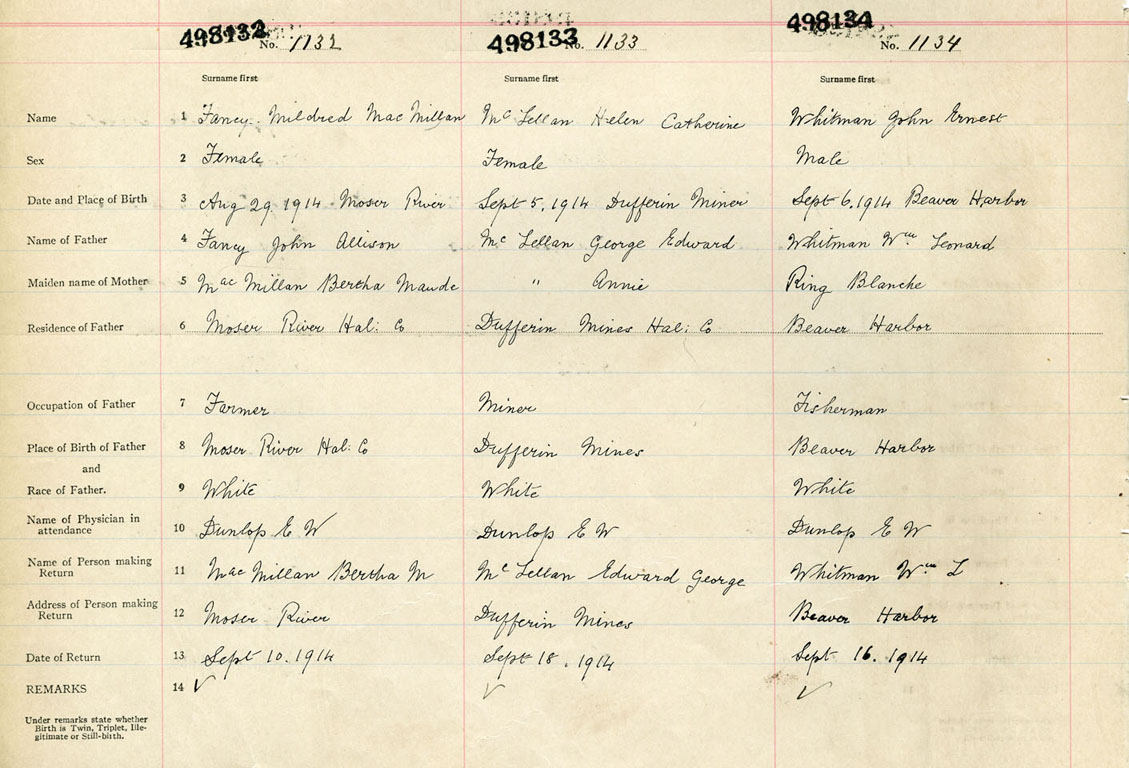 498132 No. 1132 498133 No. 1133 498134 No. 1134
Surname first Surname first Surname first
Name 1 Fancy Mildred MacMillan McLellan Helen Catherine Whitman John Ernest
Sex 2 Female Female Male
Date and Place of Birth 3 Aug 29. 1914 Moser River Sept 5, 1914 Dufferin Miner Sept 6. 1914 Beaver Harbor
Name of Father 4 Fancy John Allison McLellan George Edward Whitman Wm Leonard
Maiden name of Mother 5 MacMillan Bertha Maude " Annie Ring Blanche
Residence of Father 6 Moser River Hal: Co Dufferin Mines Hal: Co Beaver Harbor
Occupation of Father 7 Farmer Miner Fisherman
Place of Birth of Father 8 Moser River Hal: Co Dufferin Mines Beaver Harbor
and
Race of Father. 9 White White White
Name of Physician in
attendance 10 Dunlop E W Dunlop E W Dunlop E W
Name of Person making
Return 11 MacMillan Bertha M McLellan Edward George Whitman Wm L
Address of Person making
Return 12 Moser River Dufferin Mines Beaver Harbor
Date of Return 13 Sept 10. 1914 Sept 18. 1914 Sept 16. 1914
REMARKS 14 ✓ ✓ ✓
Under remarks state whether
Birth is Twin, Triplet, Ille-
gitimate or Still-birth.